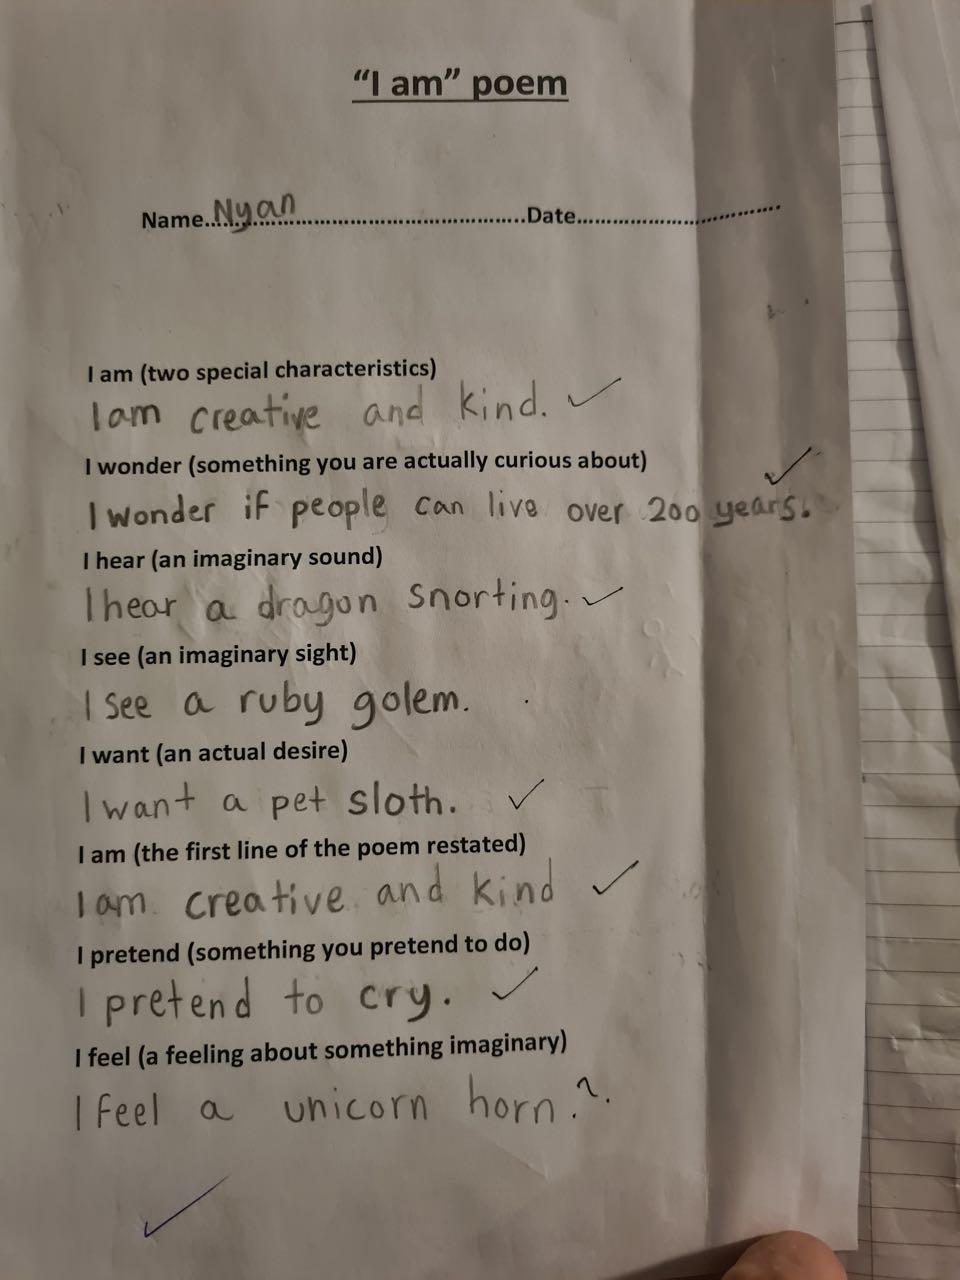 “I am” poem
Name..Nyan...............................................Date...................................
I am (two special characteristics)
I am creative and kind. ✓
I wonder (something you are actually curious about)
I wonder if people can live over 200 years. ✓
I hear (an imaginary sound)
I hear a dragon snorting. ✓
I see (an imaginary sight)
I see a ruby golem.
I want (an actual desire)
I want a pet sloth. ✓
I am (the first line of the poem restated)
I am creative and kind ✓
I pretend (something you pretend to do)
I pretend to cry. ✓
I feel (a feeling about something imaginary)
I feel a unicorn horn. ?
✓